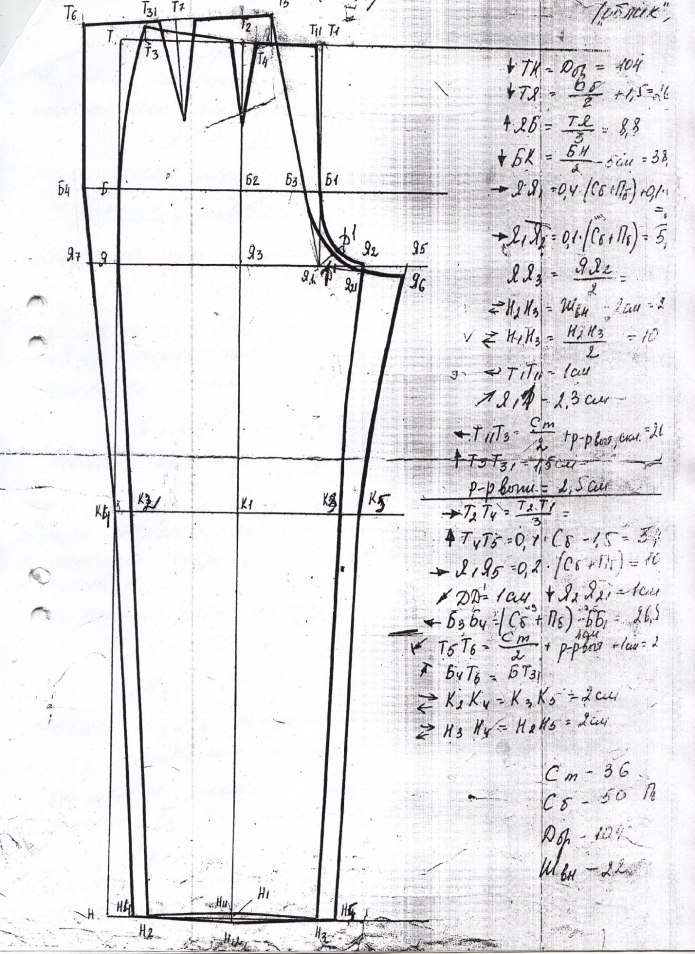 Т6 Т31 Т7 Т5
Т Т3 Т2 Т4 Т11 Т1
Б4 Б Б2 Б3 Б1
Я7 Я Я3 Я1 Я2 Я5
Я21 Я6
К4 К2 К1 К3 К5
Н Н4 Н1 Н5
Н2 Н3
↓ ТН = Дбр = 104
↓ ТЯ = Сб/2 + 1,5 = 26
↑ ЯБ = ТЯ/3 = 8,8
↓ БК = БН/2 - 5см = 38,
→ ЯЯ1 = 0,4·(Сб+Пб)+0,1
→ Я1Я2 = 0,1·(Сб+Пб) = 5,
ЯЯ3 = ЯЯ2/2 =
Н2Н3 = Швн - 2см = 2
Н1Н3 = Н2Н3/2 = 10
← Т1Т11 = 1см
- 2,3 см
← Т11Т3 = Ст/2 + р-р выт. = 20
↑ Т3Т31 = 1,5см
р-р выт. = 2,5см
→ Т2Т4 = Т2Т1/3 =
↑ Т4Т5 = 0,1·Сб - 1,5 = 3,
→ Я1Я5 = 0,2·(Сб+Пб) = 10
ДД1 = 1см ↓ Я2Я21 = 1см
← Б3Б4 = (Сб+Пб) - ББ1 = 26,5
Т5Т6 = Ст/2 + р-р выт + 1см = 2
Б4Т6 = БТ31
К2К4 = К3К5 = 2см
Н3Н4 = Н2Н5 = 2см
Ст - 36
Сб - 50 П
Дбр - 104
Швн - 22